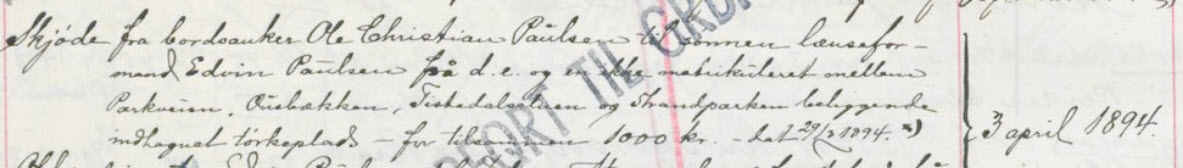 Skjøde fra bordsauker Ole Christian Paulsen til sønnen lænsefor-
mand Edvin Paulsen på d. e. og en ikke matrikuleret mellem
Parkveien, Ousbækken, Tistedalselven og Strandparken beliggende
indhegnet tørkeplads – for tilsammen 1000 kr. – dat 29/3 1894. *)
3 april 1894.
ORT TIL GRBN